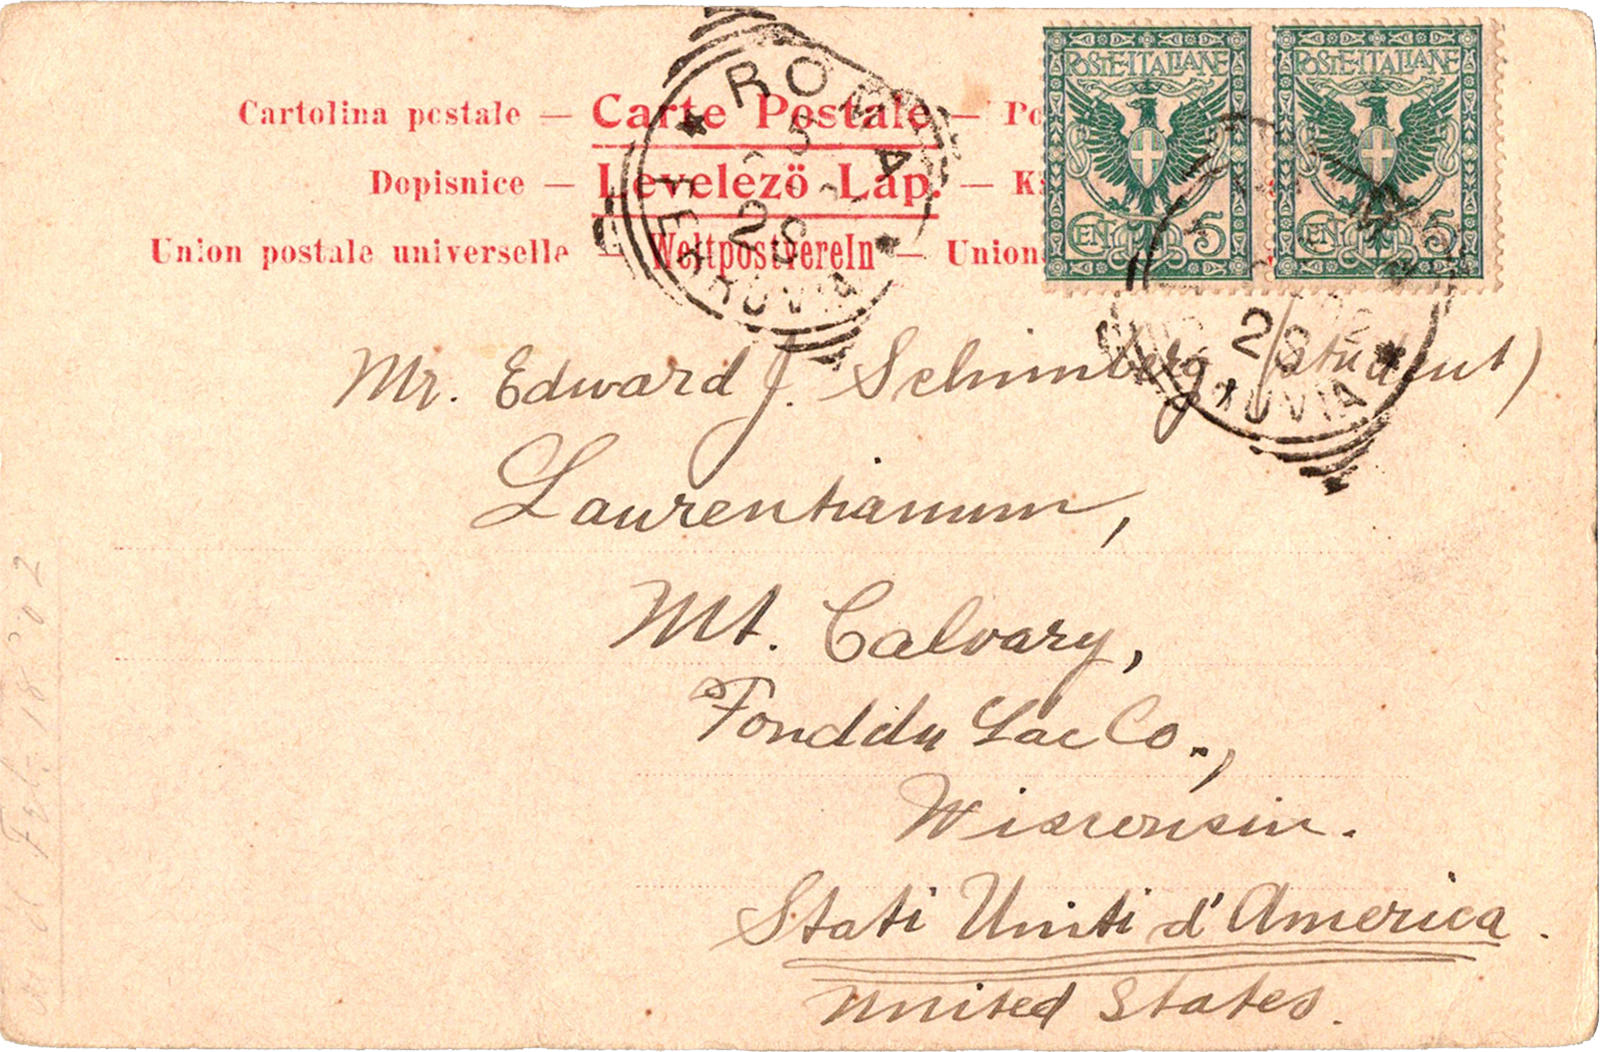 Cartolina postale — Carte Postale —
Dopisnice — Levelezö Lap. —
Union postale universelle — Weltpostverein — Union
POSTE·ITALIANE
CEN 5
POSTE·ITALIANE
CEN 5
ROMA
5
2S
FERROVIA
2S
Mr. Edward J. Schimberg (Student)
Laurentianum,
Mt. Calvary,
Fond du Lac Co.,
Wisconsin.
Stati Uniti d'America.
United States.
Feb. 18 '02